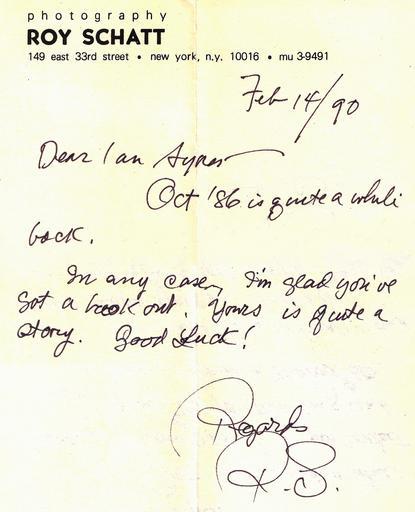 photography
ROY SCHATT
149 east 33rd street • new york, n.y. 10016 • mu 3-9491
Feb 14/90
Dear Ian Ayres
Oct '86 is quite a while
back.
In any case, I'm glad you've
got a book out. Yours is quite a
story. Good Luck!
Regards
R.S.